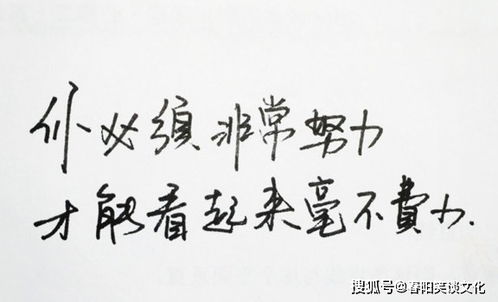 你必须非常努力
才能看起来毫不費力.
搜狐号@春阳笑谈文化